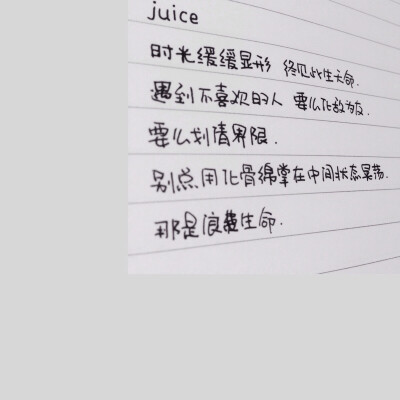 juice
时光缓缓显形 终见此生天命.
遇到不喜欢的人 要么化敌为友.
要么划清界限.
别总用化骨绵掌在中间状态晃荡.
那是浪费生命.